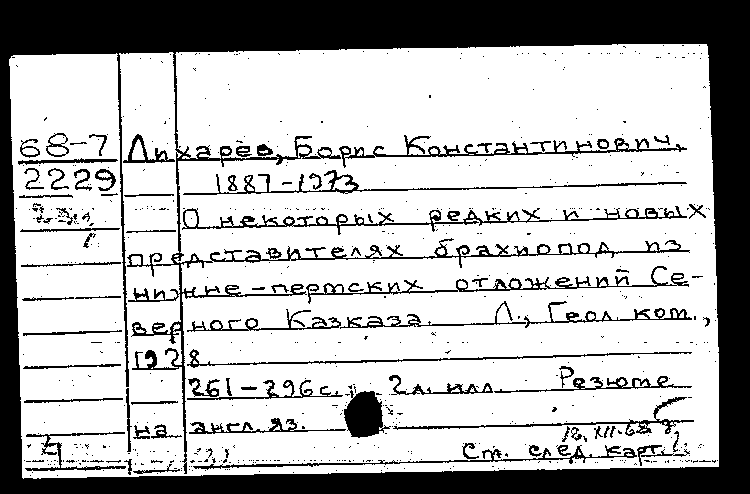 68-7 Лихарев, Борис Константинович,
2229 1887-1973
2 экз. О некоторых редких и новых
представителях брахиопод из
нижне-пермских отложений Се-
верного Казказа. Л., Геол. ком.,
1928.
261-296 с., 2 л. илл. Резюме
на англ. яз.
18.XII.68
4 См. след. карт.